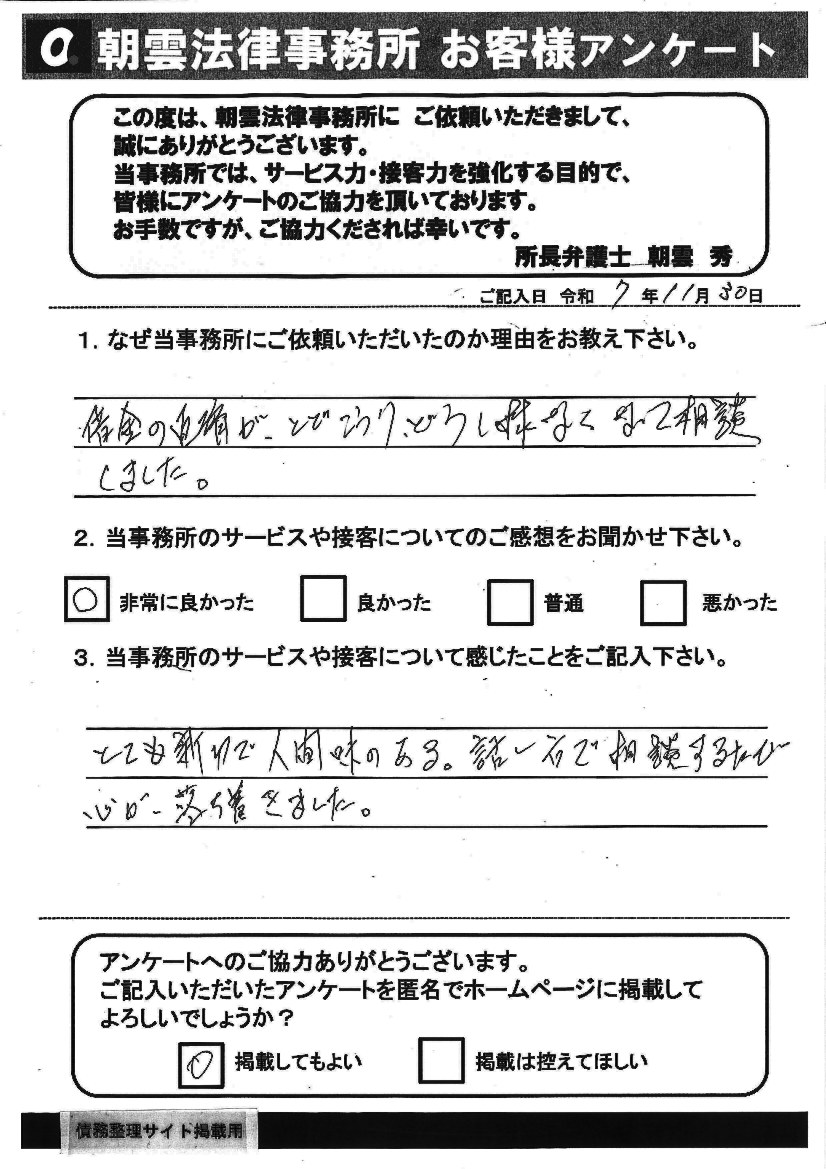 a. 朝雲法律事務所 お客様アンケート
この度は、朝雲法律事務所に ご依頼いただきまして、
誠にありがとうございます。
当事務所では、サービス力・接客力を強化する目的で、
皆様にアンケートのご協力を頂いております。
お手数ですが、ご協力くだされば幸いです。
所長弁護士 朝雲 秀
ご記入日 令和 7 年 11 月 30 日
1. なぜ当事務所にご依頼いただいたのか理由をお教え下さい。
借金の返済が、とどこうり、どうし様なくなって相談
しました。
2. 当事務所のサービスや接客についてのご感想をお聞かせ下さい。
○ 非常に良かった 良かった 普通 悪かった
3. 当事務所のサービスや接客について感じたことをご記入下さい。
とても で人間味のある。話し方で相談するたび
心が 落ち着きました。
アンケートへのご協力ありがとうございます。
ご記入いただいたアンケートを匿名でホームページに掲載して
よろしいでしょうか？
○ 掲載してもよい 掲載は控えてほしい
債務整理サイト掲載用